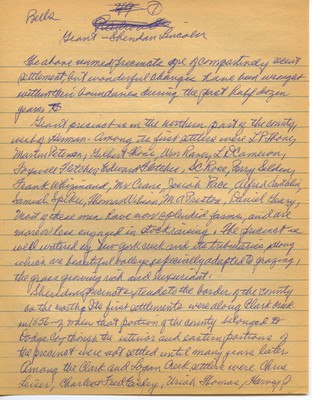 Bells 49 (1)
Grant - Sheridan - Lincoln
The above named precincts are of comparatively recent
settlement, but wonderful changes have been wrought
within their boundaries during the past half dozen
years
Grant precinct is in the northern part of the county
west of Herman. Among the first settlers were L. Thone,
Martin Peterson, Gilbert Thone, Wm Raney, L. D. Cameron,
Fogwell Fletcher, Edward Fletcher, S C Rose, Perry Selden,
Frank Whizinand, Mr. Crane, Josiah Pace, Alfred
Samuel Spiker, Thomas Wilson, M. A. Preston, Daniel Geary,
Most of these men have now splendid farms, and are
more or less engaged in stock raising. The precinct is
well watered by New York creek and its tributaries along
which are beautiful valleys, especially adapted to grazing,
the grass growing rich and luxuriant.
Sheridan precinct extends to the border of the county
on the north. The first settlements were along Clark creek
in 1856-7 when that portion of the county belonged to
Dodge Coy though the interior and eastern portions of
the precinct were not settled until many years later.
Among the Clark and Logan Creek settlers were Chris
Leiser, Charles & Fred Eisley, Uriah Thomas, Harvey J.